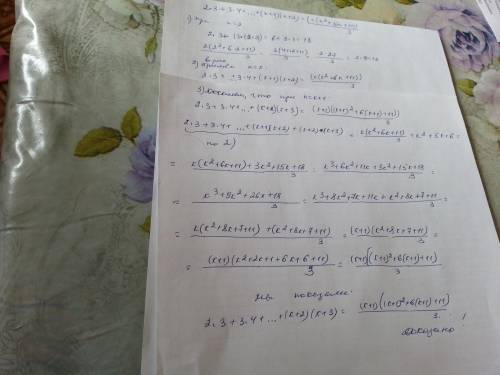 2.3+3.4+...+(n+1)(n+2) = (n(n²+6n+11))/3
1) при n=2
2.3+(2+1)(2+2) = 6+3.4=18
верно
2) n=k
2.3+...+(k+1)(k+2) = (k(k²+6k+11))/3
3) что при n=k+1:
2.3+3.4+...+(k+2)(k+3) = ((k+1)((k+1)²+6(k+1)+11))/3
2.3+3.4+...+(k+1)(k+2)+(k+2)(k+3) = (k(k²+6k+11))/3 + k²+5k+6=
по 2)
= (k(k²+6k+11)+3k²+15k+18)/3 = (k³+6k²+11k+3k²+15k+18)/3 =
= (k³+9k²+26k+18)/3 = (k³+8k²+7k+11k+k²+8k+7+11)/3 =
= (k(k²+8k+7+11)+(k²+8k+7+11))/3 = ((k+1)(k²+8k+7+11))/3 =
= ((k+1)(k²+2k+1+6k+6+11))/3 = ((k+1)((k+1)²+6(k+1)+11))/3
мы показали:
2.3+3.4+...+(k+2)(k+3) = ((k+1)((k+1)²+6(k+1)+11))/3.
доказано!